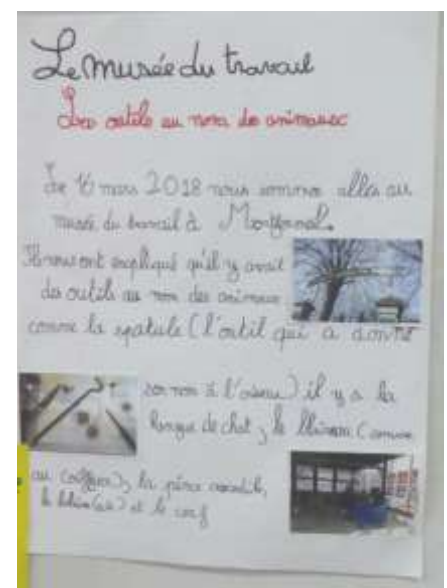 Le musée du travail
Les outils au nom des animaux
Le 16 mars 2018 nous sommes allés au
musée du travail à
Ils nous ont expliqué qu'il y avait
des outils au nom des animaux
comme la spatule (l'outil qui a donné
son nom à l'oiseau) il y a la
langue de chat, le (comme
au coiffeur), la pince crocodile,
le et le cerf